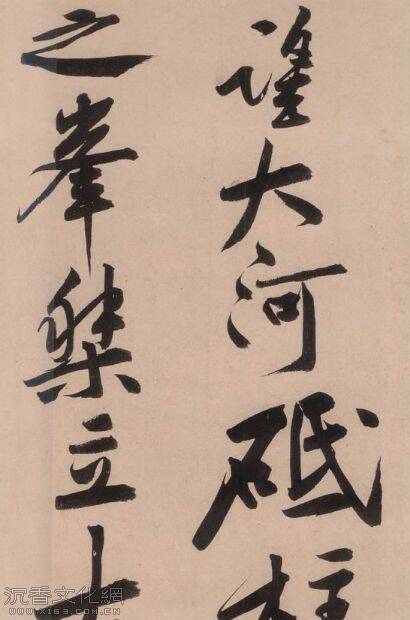 大河砥柱
之峯桀立
沉香文化網
WWW.X163.COM.CN